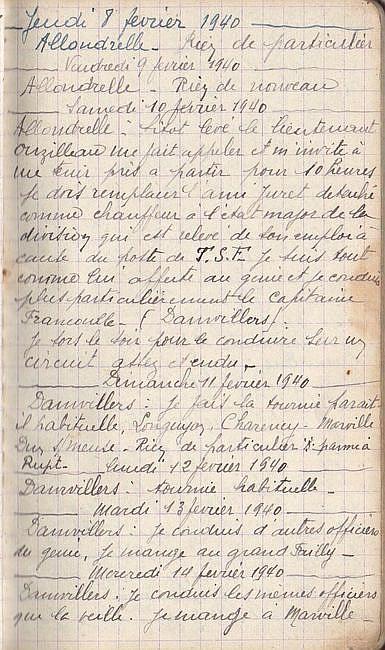 Jeudi 8 février 1940
Allondrelle - Riez de particulier
Vendredi 9 février 1940
Allondrelle - Riez de nouveau
Samedi 10 février 1940
Allondrelle - Sitot levé le lieutenant
Ouzilleau me fait appeler et m'invite à
me tenir pris a partir pour 10 heures
Je dois remplacer l'ami Juret détaché
comme chauffeur à l'état major de la
division qui est relevé de son emploi à
cause du poste de T.S.F. Je suis tout
comme lui affecté au genie et je conduis
plus particulièrement le Capitaine
Franconelle - (Damvillers).
Je sors le soir pour le conduire sur un
circuit assez etendu -
Dimanche 11 février 1940 -
Damvillers : Je fais la tournée parait
il habituelle, Longuyon, Charency - Marville
Dun s/meuse. Riez de particulier
Rupt - Lundi 12 février 1940
Damvillers : tournée habituelle -
Mardi 13 février 1940 -
Damvillers : Je conduis d'autres officiers
du genie, Je mange au grand Failly -
Mercredi 14 février 1940
Damvillers : Je conduis les mêmes officiers
que la veille. Je mange à Marville -